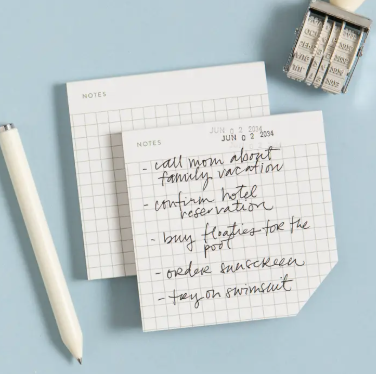 NOTES
NOTES
JUN 0 2 2034
JUN 0 2 2034
- call mom about
family vacation
- confirm hotel
reservation
- buy floaties for the
pool
- order sunscreen
- try on swimsuit